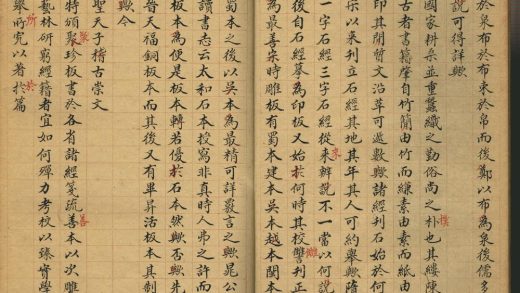 於泉布於布束於帛而後鄭以布為泉後儒多
說可得詳歟
國家耕桒並重蠶織之勤俗尚之朴也其縷陳
樸
古者書籍肇自竹簡由竹而縑素由素而紙由
印其閒文沿革可遞數歟諸經刊石始於何
以来列立石經其地其年其人可約舉歟隋
一字石經三字石經從来辨說不一當以何說
自石經摹為印板又始於何時其校讐刋正
最善宋時雕板有蜀本建本吳本越本閩本
蜀本之後以吳本為最精可詳言之歟晁公
讀書志云太和石本授寫非真時人弗之許而
板本為便是板本轉若優於石本然歟否歟先
晉天福銅板本而其後又有畢昇活板本其制
歟今
聖天子稽古崇文
特頒聚珍板書於各省諸經箋疏善本以次雕
善
藝林研窮經籍者宜如何殫力考校以臻實學
舉所究以著於篇